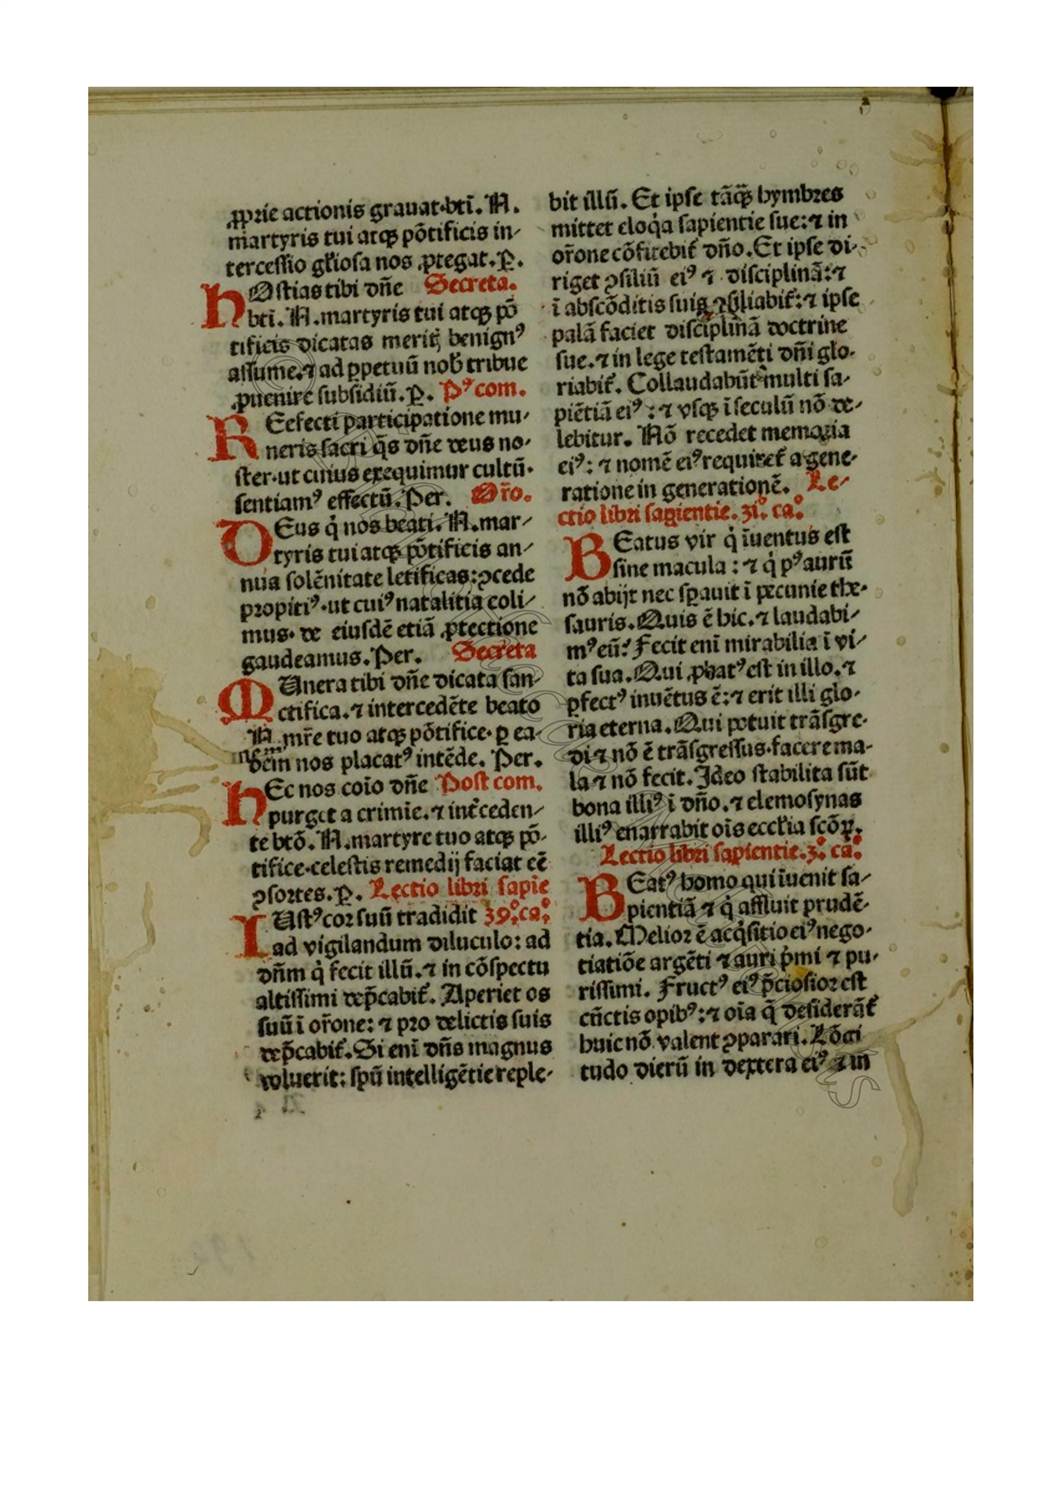 ꝓprie actionis grauat·bt̄i. N.
martyris tui atqꝫ põtificis in⸗
tercessio gl̄iosa nos ꝓtegat. P̱.
HOstias tibi dñe Secreta.
bt̄i. N. martyris tui atqꝫ põ
tificis dicatas meritꝭ benignꝰ
assume.⁊ ad ꝑpetuū nob̄ tribue
ꝓuenire subsidiū. P̱. Pꝰcom.
REfecti participatione mu⸗
neris sacri q̄s dñe deus no⸗
ster·ut cuius exequimur cultū·
sentiamꝰ effectū. Per. Or̄o.
DEus q̇ nos beati. N. mar⸗
tyris tui atqꝫ põtificis an⸗
nua solẽnitate letificas: ꝯcede
propitiꝰ·ut cuiꝰ natalitia coli⸗
mus· de eiusdẽ etiã ꝓtectione
gaudeamus. Per. Secreta
MUnera tibi dñe dicata san⸗
ctifica.⁊ intercedẽte beato
N. mr̄e tuo atqꝫ põtifice· ꝑ ea⸗
dem nos placatꝰ intẽde. Per.
HEc nos coīo dñe Post com.
purget a crimīe.⁊ int̄ceden⸗
te btõ. N. martyre tuo atqꝫ põ⸗
tifice·celestis remedij faciat eẽ
ꝯsortes. P̱. Lectio libri sapiẽ
IUstꝰ cor suū tradidit 39°.ca°.
ad vigilandum diluculo: ad
dñm q̇ fecit illū.⁊ in cõspectu
altissimi dep̄cabit̄. Aperiet os
suū ī or̄one: ⁊ pro delictis suis
dep̄cabit̄. Si enī dñs magnus
voluerit: spū intelligẽtie reple⸗
bit illū. Et ipse tãqꝫ hymbres
mittet eloq̇a sapientie sue: ⁊ in
or̄one cõfitebit̄ dño. Et ipse di⸗
riget ꝯsiliū eiꝰ ⁊ disciplinã: ⁊
ī abscõditis suis ꝯsiliabit̄: ⁊ ipse
palã faciet disciplinã doctrine
sue.⁊ in lege testamẽti dñi glo⸗
riabit̄. Collaudabūt multi sa⸗
piẽtiã eiꝰ: ⁊ vsqꝫ ī seculū nõ de⸗
lebitur. Nõ recedet memoria
eiꝰ: ⁊ nomẽ eiꝰ requiret̄ a gene⸗
ratione in generationẽ. Le⸗
ctio libri sapientie. 31°. ca°.
BEatus vir q̇ īuentus est
sine macula: ⁊ q̇ pꝰ aurū
nõ abijt nec sꝑauit ī pecunie the⸗
sauris. Quis ẽ hic.⁊ laudabi⸗
mꝰ eū? Fecit enī mirabilia ī vi⸗
ta sua. Qui ꝓbatꝰ est in illo.⁊
ꝑfectꝰ inuẽtus ẽ: ⁊ erit illi glo⸗
ria eterna. Qui potuit trãsgre⸗
di ⁊ nõ ẽ trãsgressus·facere ma⸗
la ⁊ nõ fecit. Ideo stabilita sūt
bona illiꝰ ī dño.⁊ elemosynas
illiꝰ enarrabit oīs eccl̄ia scõꝝ.
Lectio libri sapientie. 3°. ca°.
BEatꝰ homo qui īuenit sa⸗
pientiã ⁊ q̇ affluit prudẽ⸗
tia. Melior ẽ acq̇sitio eiꝰ nego⸗
tiatiõe argẽti ⁊ auri p̄mi ⁊ pu⸗
rissimi. Fructꝰ eiꝰ p̄ciosior est
cūctis opibꝰ: ⁊ oīa q̄ desiderãt̄
huic nõ valent ꝯparari. Lõgi
tudo dierū in dextera eiꝰ ⁊ in